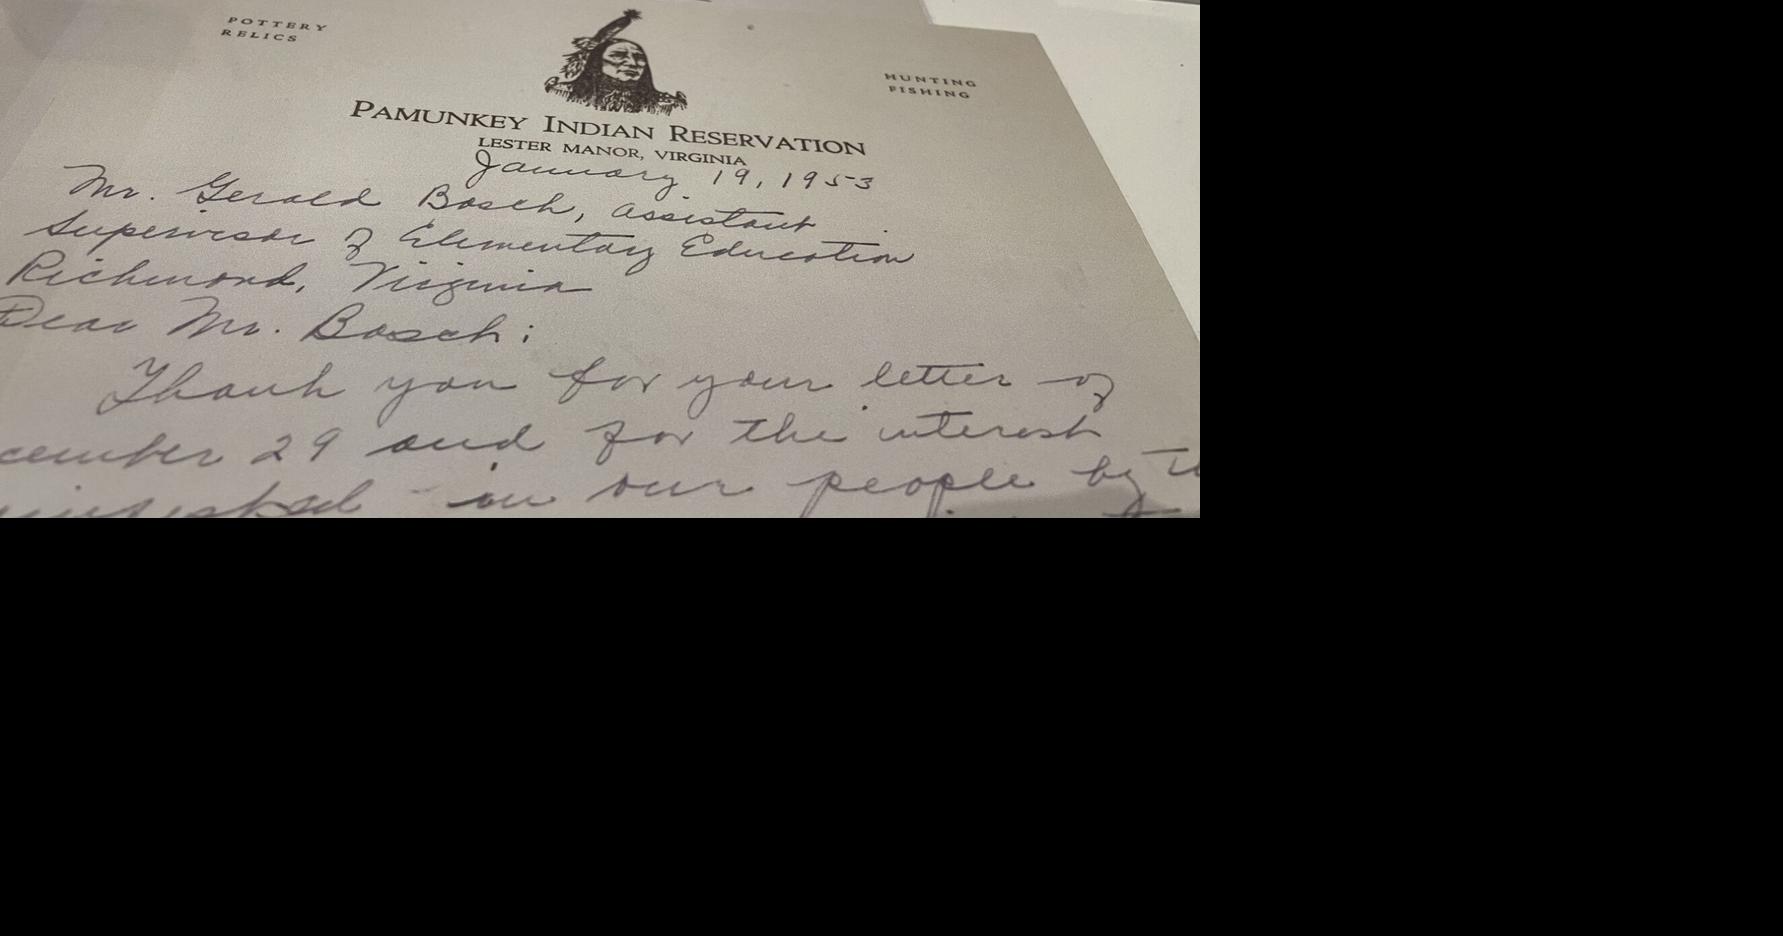 POTTERY
RELICS
HUNTING
FISHING
PAMUNKEY INDIAN RESERVATION
LESTER MANOR, VIRGINIA
January 19, 1953
Mr. Gerald Bosch, Assistant
Supervisor of Elementary Education
Richmond, Virginia
Dear Mr. Bosch:
Thank you for your letter of
cember 29 and for the interest
in our people by